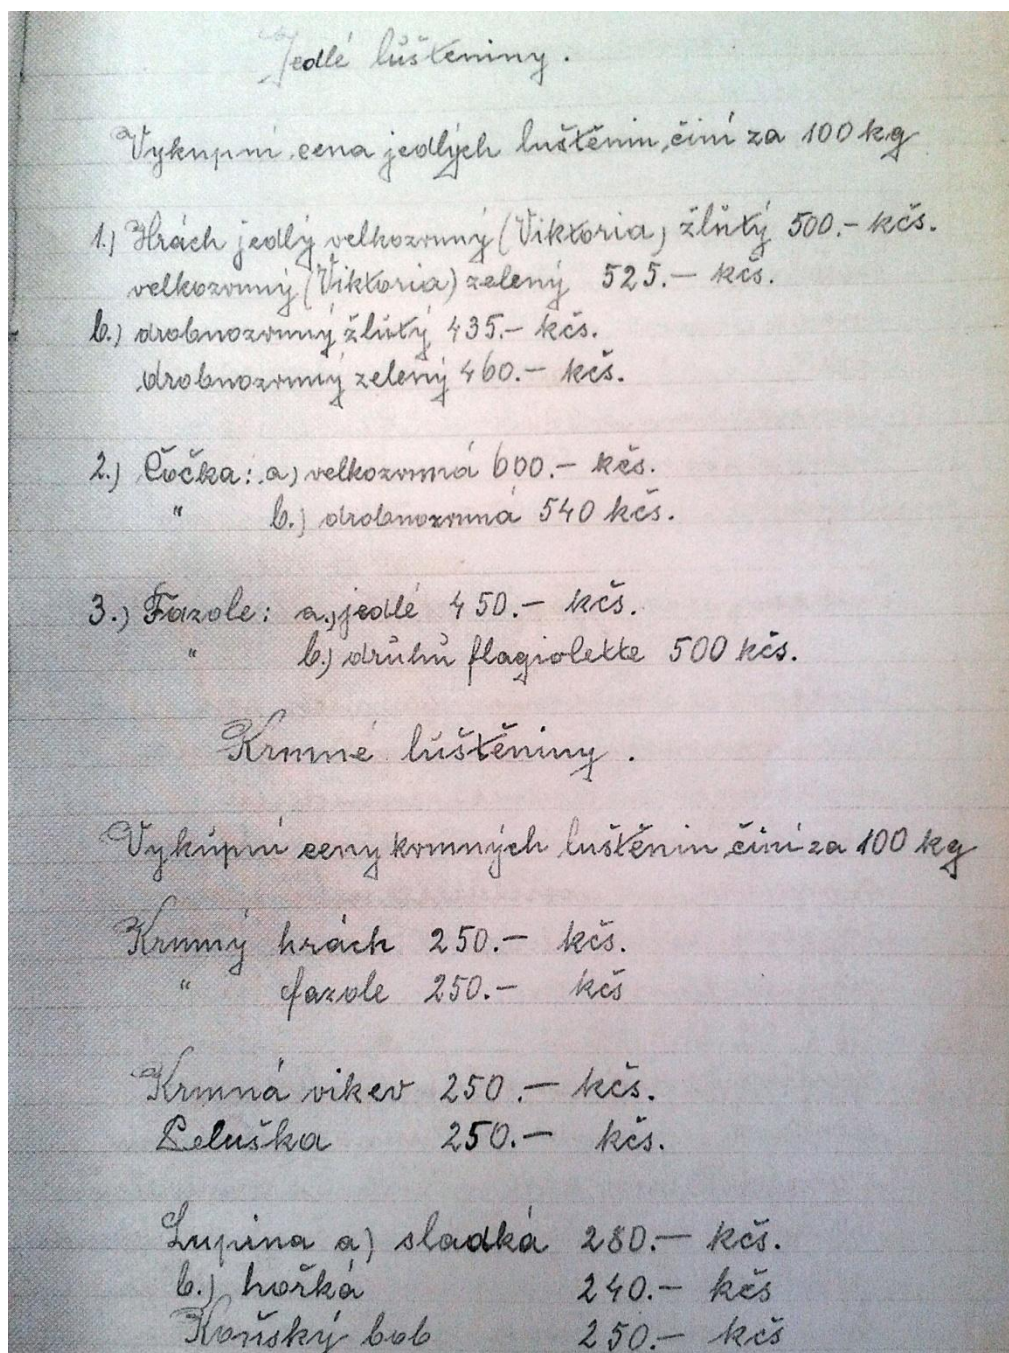 Jedlé lůštěniny.
Vykupní cena jedlých luštěnin činí za 100 kg
1.) Hrách jedlý velkozrnný (Viktoria) žlůtý 500.- kčs.
velkozrnný (Viktoria) zelený 525.- kčs.
b.) drobnozrnný žlůtý 435.- kčs.
drobnozrnný zelený 460.- kčs.
2.) Čočka: a) velkozrnná 600.- kčs.
" b.) drobnozrnná 540 kčs.
3.) Fazole: a.) jedlé 450.- kčs.
" b.) drůhů flagiolette 500 kčs.
Krmné lůštěniny.
Vykůpní ceny krmných luštěnin činí za 100 kg
Krmný hrách 250.- kčs.
" fazole 250.- kčs
Krmná vikev 250.- kčs.
Peluška 250.- kčs.
Lupina a) sladká 280.- kčs.
b.) hořká 240.- kčs
Koňský bob 250.- kčs